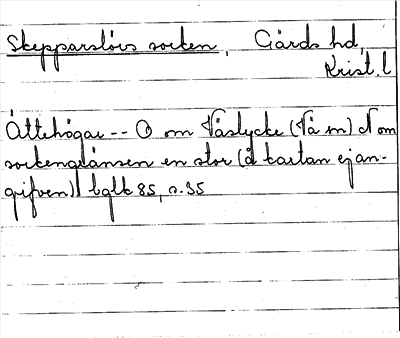 Skepparslövs socken, Gärds hd,
Krist. l
Ättehögar -- O om Våslycke (Vå sn) N om
sockengränsen en stor (å kartan ej an-
gifven) bglk 85, s. 35